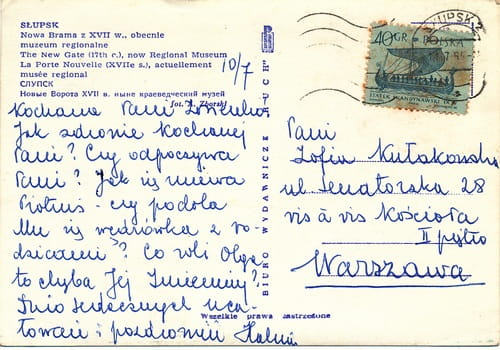 SŁUPSK
Nowa Brama z XVII w., obecnie
muzeum regionalne
The New Gate (17th c.), now Regional Museum
La Porte Nouvelle (XVIIe s.), actuellement
musée régional
СЛУПСК
Новые Ворота XVII в. ныне краеведческий музей
fot.
10/7
Kochana Pani
Jak zdrowie Kochanej
Pani? Czy odpoczywa
Pani? Jak się miewa
Piotruś - czy podoba
Mu się wędrówka z ro-
dzicami? Co u Olgi,
to chyba Jej Imieniny?
serdecznych uca-
łowań i pozdrowień Halina
BIURO WYDAWNICZE „RUCH"
Wszelkie prawa zastrzeżone
SŁUPSK 2
40 GR
POLSKA
STATEK SKANDYNAWSKI IX w.
Pani
Zofia Kułakowska
ul. Senatorska 28
vis à vis Kościoła
II piętro
Warszawa